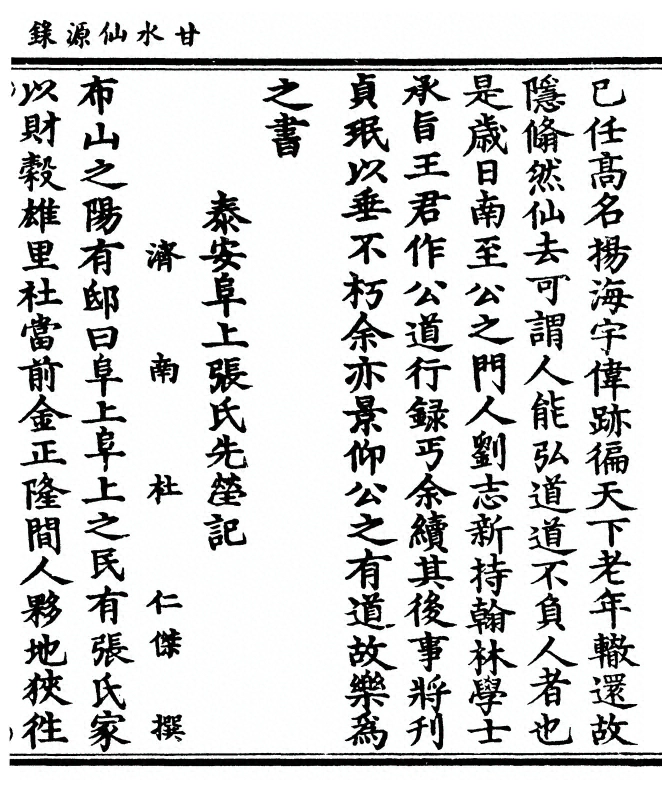 甘水仙源錄
已任高名揚海宇偉跡徧天下老年轍還故
隱翛然仙去可謂人能弘道道不負人者也
是歲日南至公之門人劉志新持翰林學士
承旨王君作公道行録丐余續其後事將刋
貞珉以垂不朽余亦景仰公之有道故樂爲
之書
泰安阜上張氏先塋記
濟南杜仁傑撰
布山之陽有邸曰阜上阜上之民有張氏家
以財穀雄里社當前金正隆間人夥地狹徃